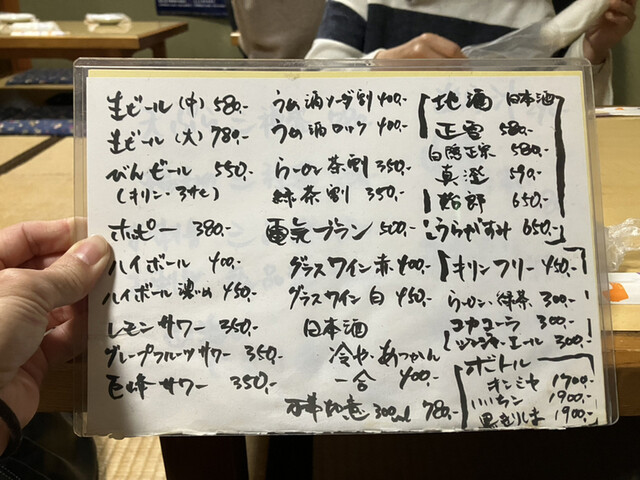 生ビール(中) 580.-
生ビール(大) 780.-
びんビール 550.-
(キリン・アサヒ)
ホッピー 380.-
ハイボール 400.-
ハイボール濃いめ 450.-
レモンサワー 350.-
グレープフルーツサワー 350.-
巨峰サワー 350.-
うめ酒ソーダ割 400.-
うめ酒ロック 400.-
ウーロン茶割 350.-
緑茶割 350.-
電気ブラン 500.-
グラスワイン赤 400.-
グラスワイン白 450.-
日本酒
冷や・あつかん
一合 400.-
300ml 780.-
地酒 日本酒
正雪 580.-
白隠正宗 580.-
真澄 590.-
650.-
うらがすみ 650.-
キリンフリー 450.-
ウーロン・緑茶 300.-
コカコーラ 300.-
ジンジャーエール 300.-
ボトル
キンミヤ 1700.-
いいちこ 1900.-
黒きりしま 1900.-